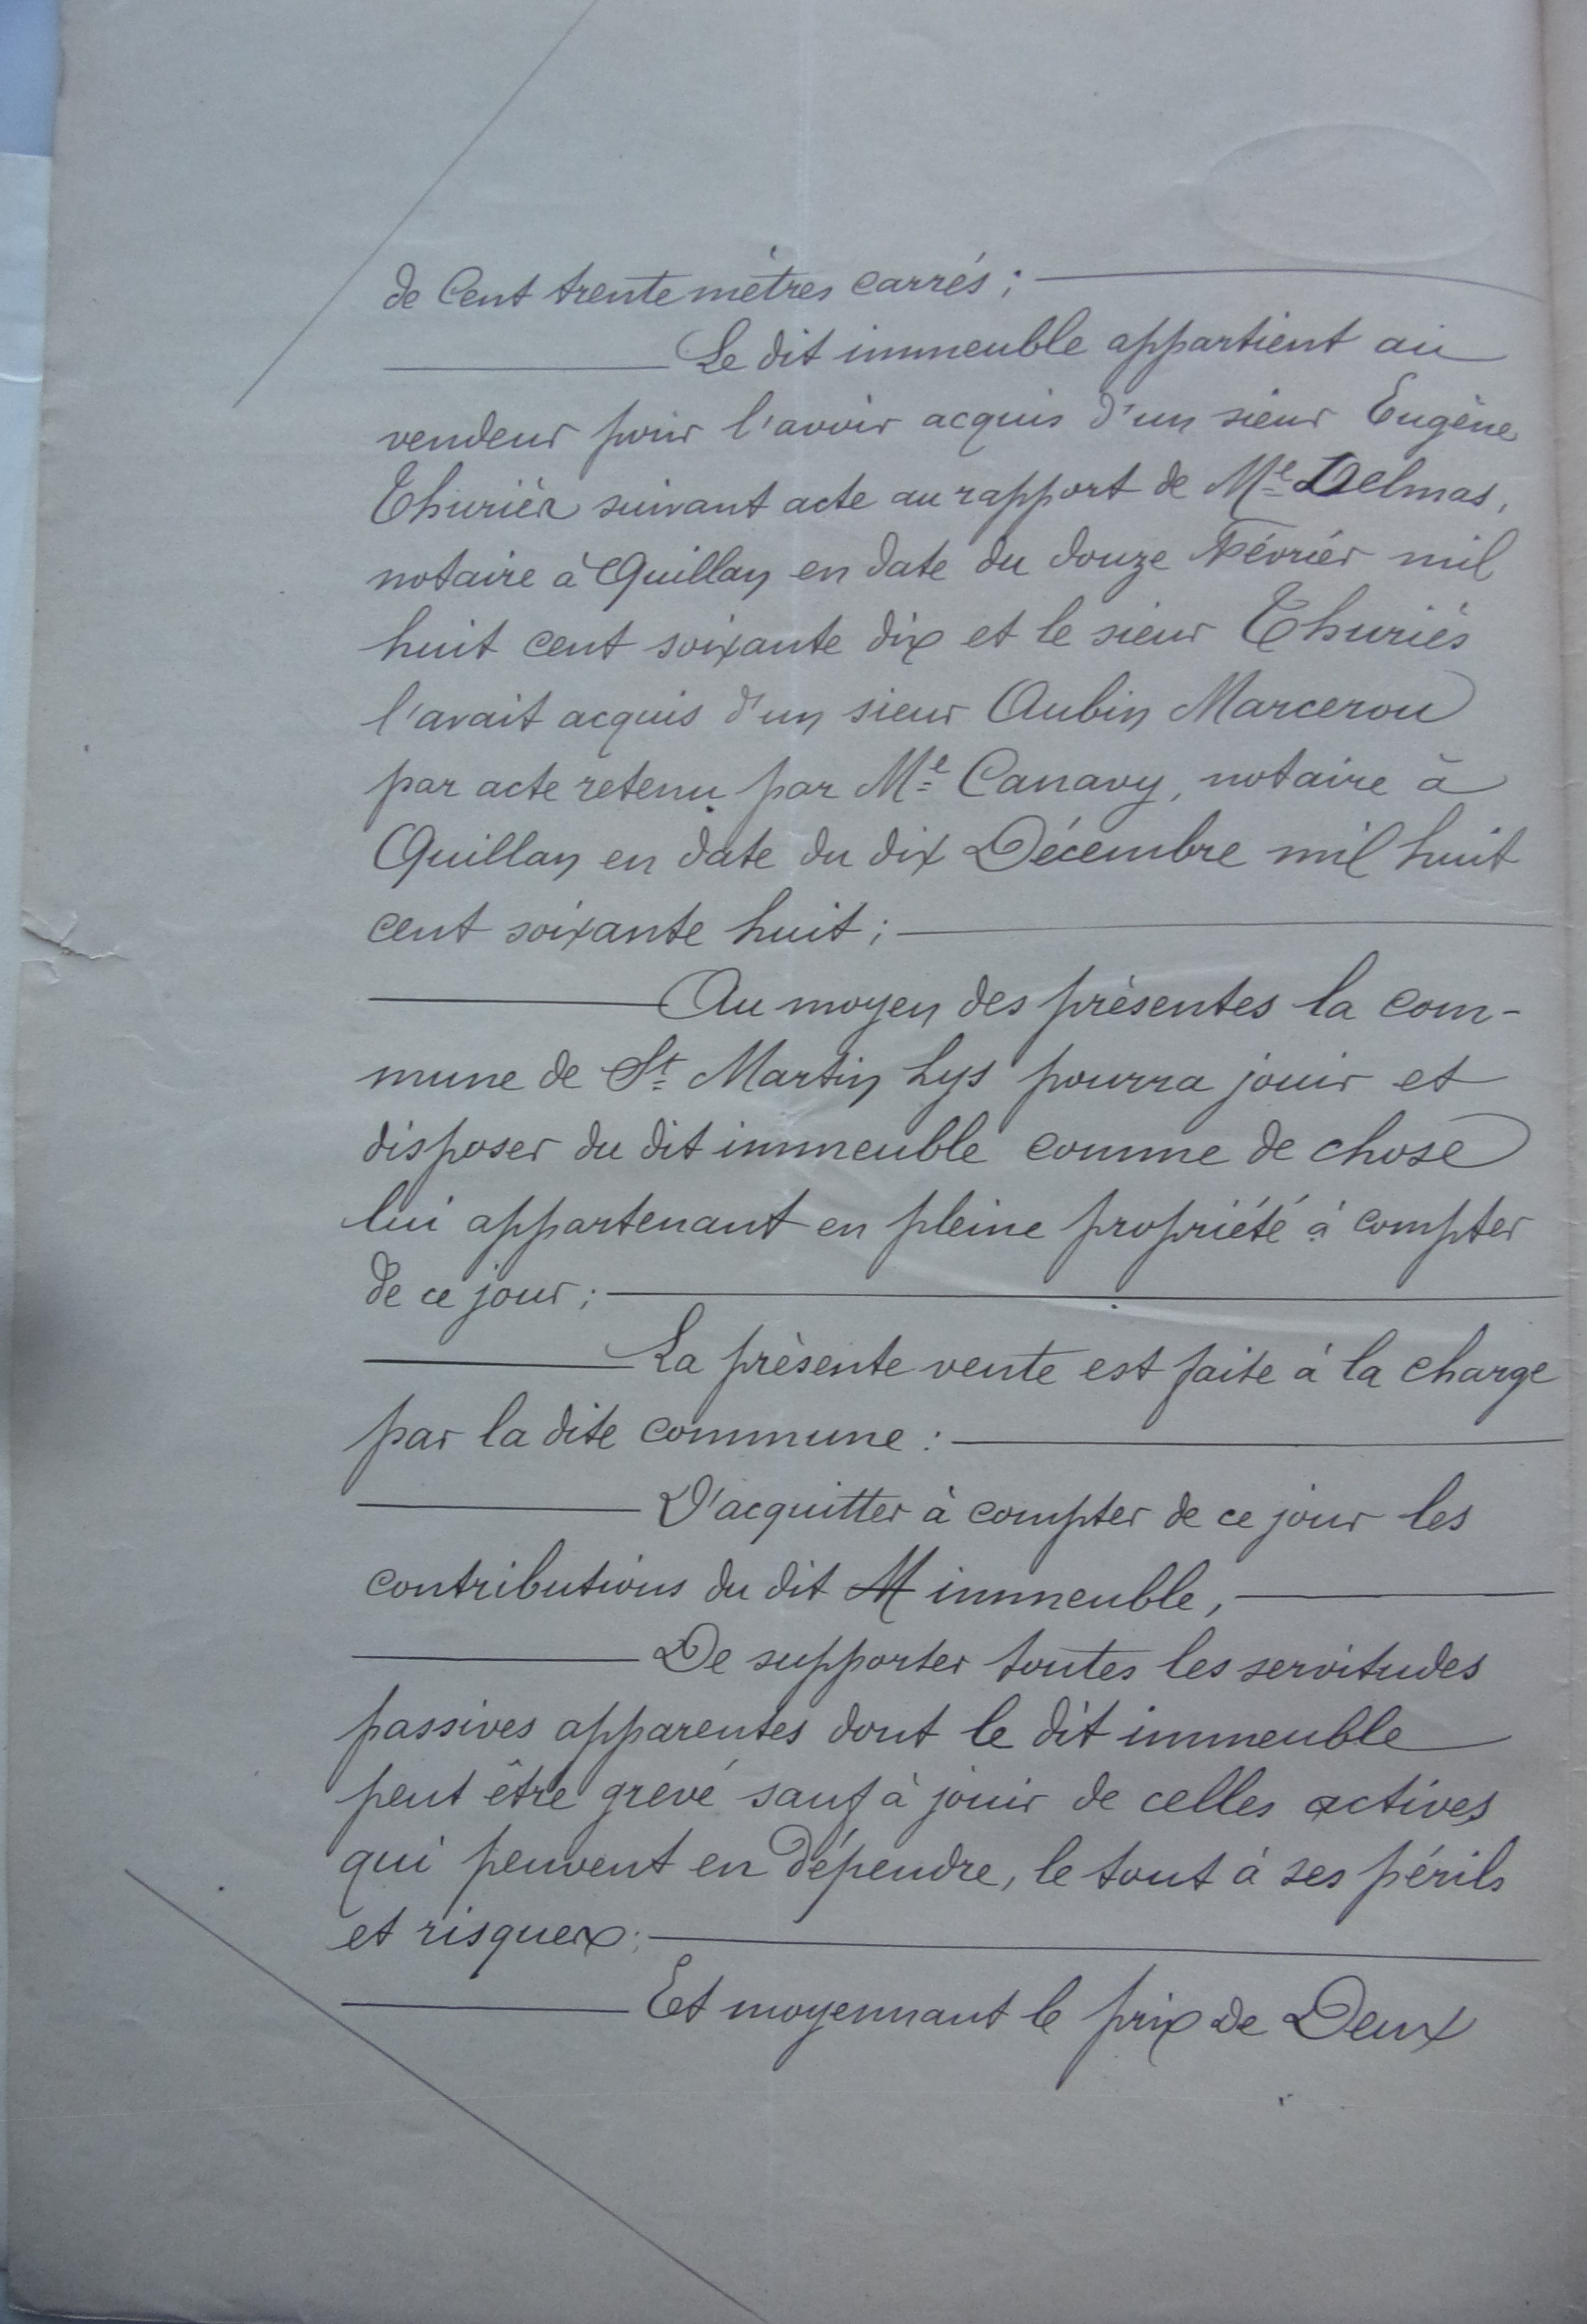 de Cent trente mètres carrés ;
Le dit immeuble appartient au
vendeur pour l'avoir acquis d'un sieur Eugène
Thuriès suivant acte au rapport de Me Delmas,
notaire à Quillan en date du douze Février mil
huit cent soixante dix et le sieur Thuriès
l'avait acquis d'un sieur Aubin Marcerou
par acte retenu par Me Canavy, notaire à
Quillan en date du dix Décembre mil huit
cent soixante huit ;
Au moyen des présentes la com-
mune de St Martin Lys pourra jouir et
disposer du dit immeuble comme de chose
lui appartenant en pleine propriété à compter
de ce jour ;
La présente vente est faite à la charge
par la dite commune :
D'acquitter à compter de ce jour les
contributions du dit M immeuble,
De supporter toutes les servitudes
passives apparentes dont le dit immeuble
peut être grevé sauf à jouir de celles actives
qui peuvent en dépendre, le tout à ses périls
et risques ;
Et moyennant le prix de Deux